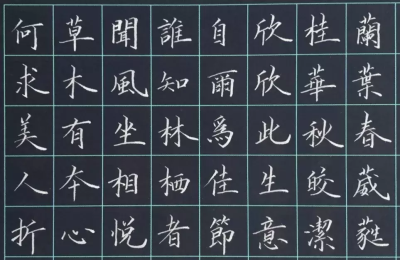 蘭葉春葳蕤
桂華秋皎潔
欣欣此生意
自爾爲佳節
誰知林栖者
聞風坐相悦
草木有夲心
何求美人折